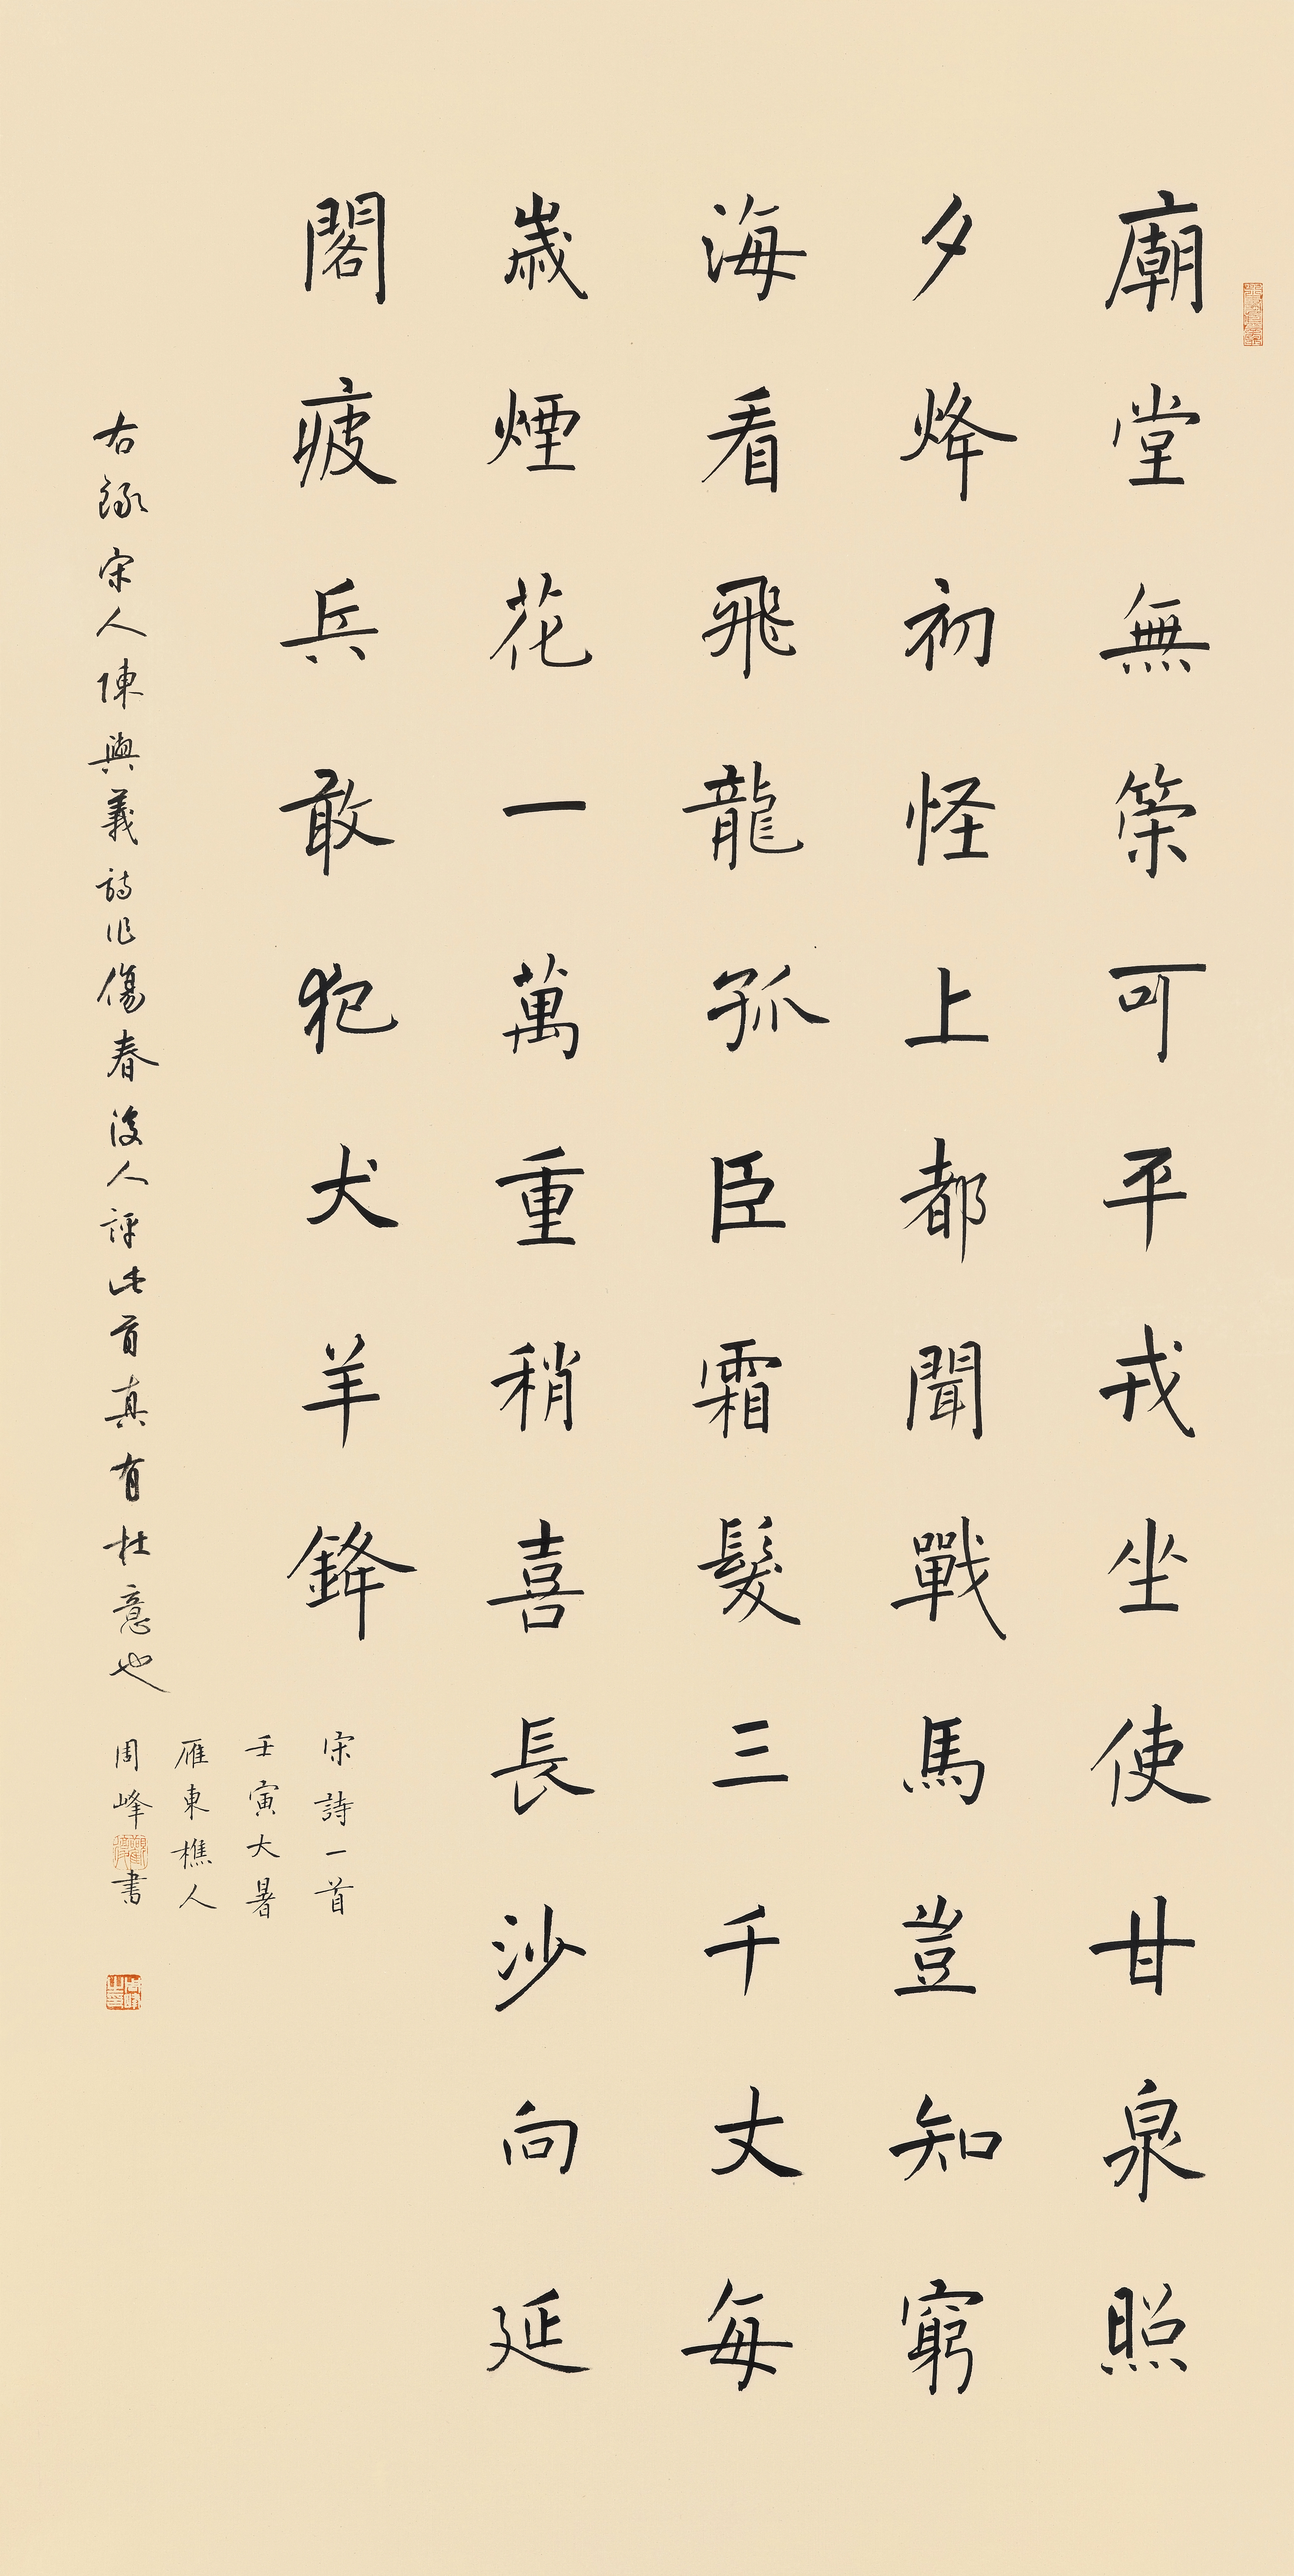 廟堂無策可平戎坐使甘泉照
夕烽初怪上都聞戰馬豈知窮
海看飛龍孤臣霜髮三千丈每
歲煙花一萬重稍喜長沙向延
閣疲兵敢犯犬羊鋒
宋詩一首
壬寅大暑
雁東樵人
右錄宋人陳與義詩作傷春後人評此首真有杜意也
周峰書